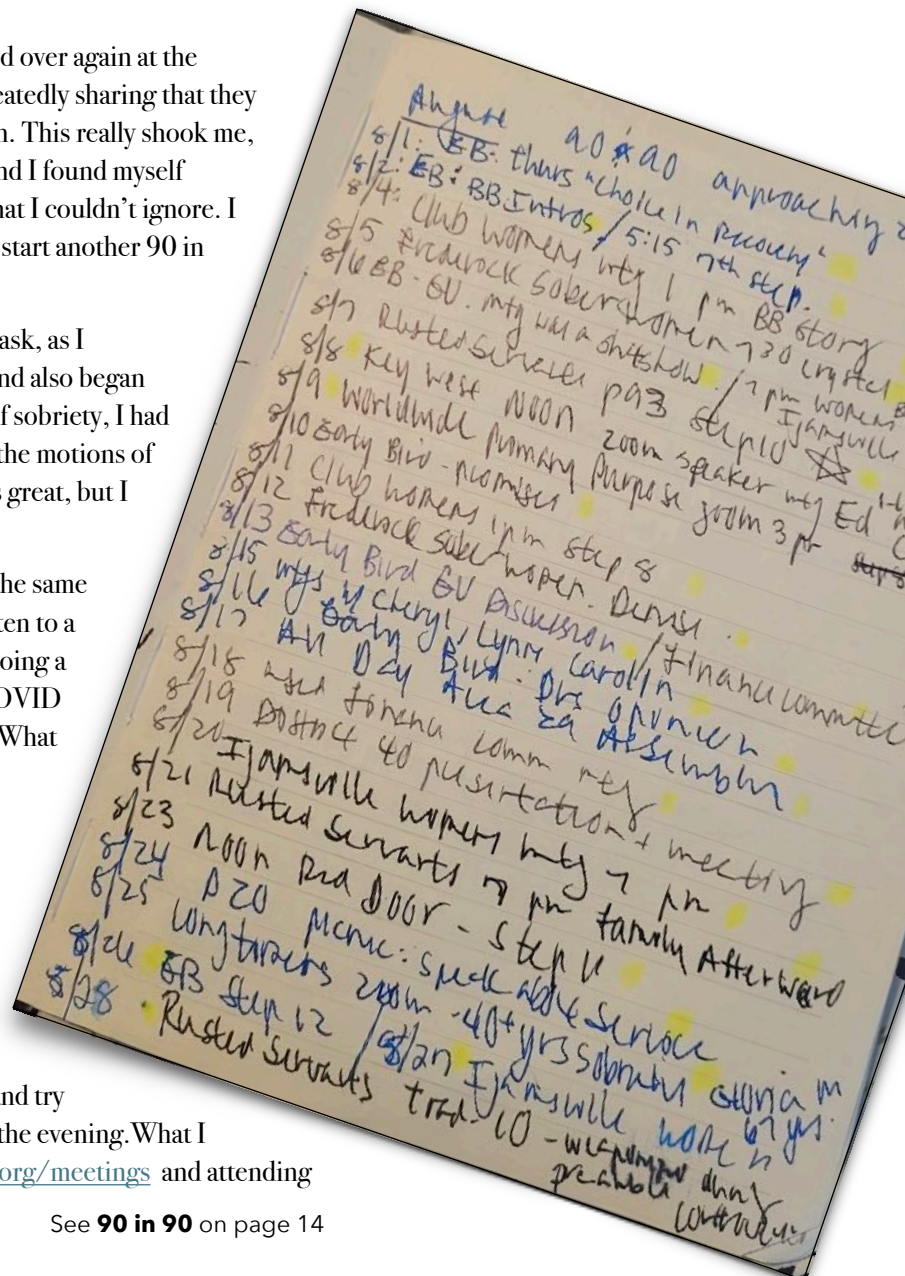 d over again at the
eatedly sharing that they
n. This really shook me,
nd I found myself
hat I couldn't ignore. I
start another 90 in
ask, as I
nd also began
f sobriety, I had
the motions of
s great, but I
he same
ten to a
oing a
OVID
What
nd try
the evening.What I
org/meetings and attending
See 90 in 90 on page 14
August 90 x 90 approaching
8/1: EB: thurs "choice in Recovery"
8/2: EB: BB Intros / 5:15 7th step.
8/4: Club Womens mtg 1 pm BB story
8/5 Frederock Sober Women 730 crystal
8/6 EB - GV. mtg was a shitshow. / 7 pm womens Ijamsville
8/7 Rusted Servants p93 step 10
8/8 Key West Noon zoom speaker mtg Ed
8/9 Worldwide Primary Purpose zoom 3 pm
8/10 Early Bird - promises
8/11 Club womens 1 pm step 8
8/12 Frederock Sober women. Denise.
8/13 Early Bird GV Discussion / Finance committe
8/15 mtgs w/ Cheryl, Lynn, Carolin
8/16 Early Bird: Drs opinion
8/17 All Day Area 29 Assembly
8/18 comm mtg
8/19 District 40 presentation + meeting
8/20 Ijamsville womens mtg 7 pm
8/21 Rusted Servants 7 pm family Afterward
8/23 Noon Red Door - Step 11
8/24 D20 picnic: speak about Service
8/25 longtimers zoom - 40+ yrs sobriety Gloria M 67 yrs.
8/26 EB Step 12 / 8/27 Ijamsville women
8/28 Rusted Servants trad. 10 - preamble